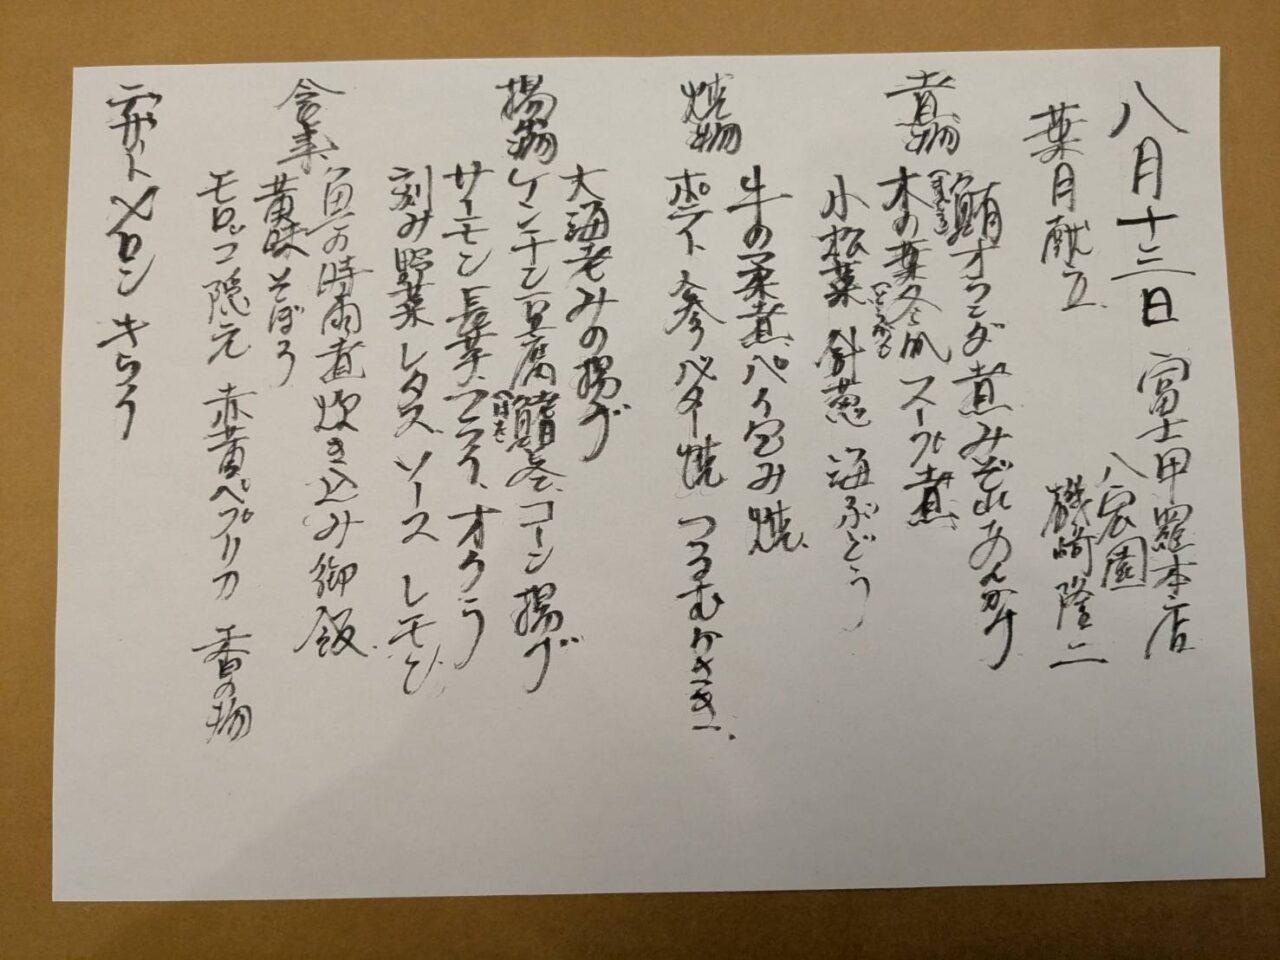 八月十三日 富士甲羅本店
八宏園
葉月献立
磯崎隆二
煮物
鮪オランダ煮みぞれあんかけ
まぐろ
木の葉冬瓜スープ煮
とうがん
小松菜 針葱 海ぶどう
焼物
牛の柔煮パイ包み焼
ポテト 参 バター焼 つるむらさき
揚物
大海老みの揚げ
ケンチン豆腐 巻、コーン揚げ
サーモン長芋 オクラ
刻み野菜レタス ソース レモン
食事
魚の時雨煮炊き込み御飯
黄味そぼろ
モロッコ隠元 赤黄パプリカ 香の物
デザート メロン きらら